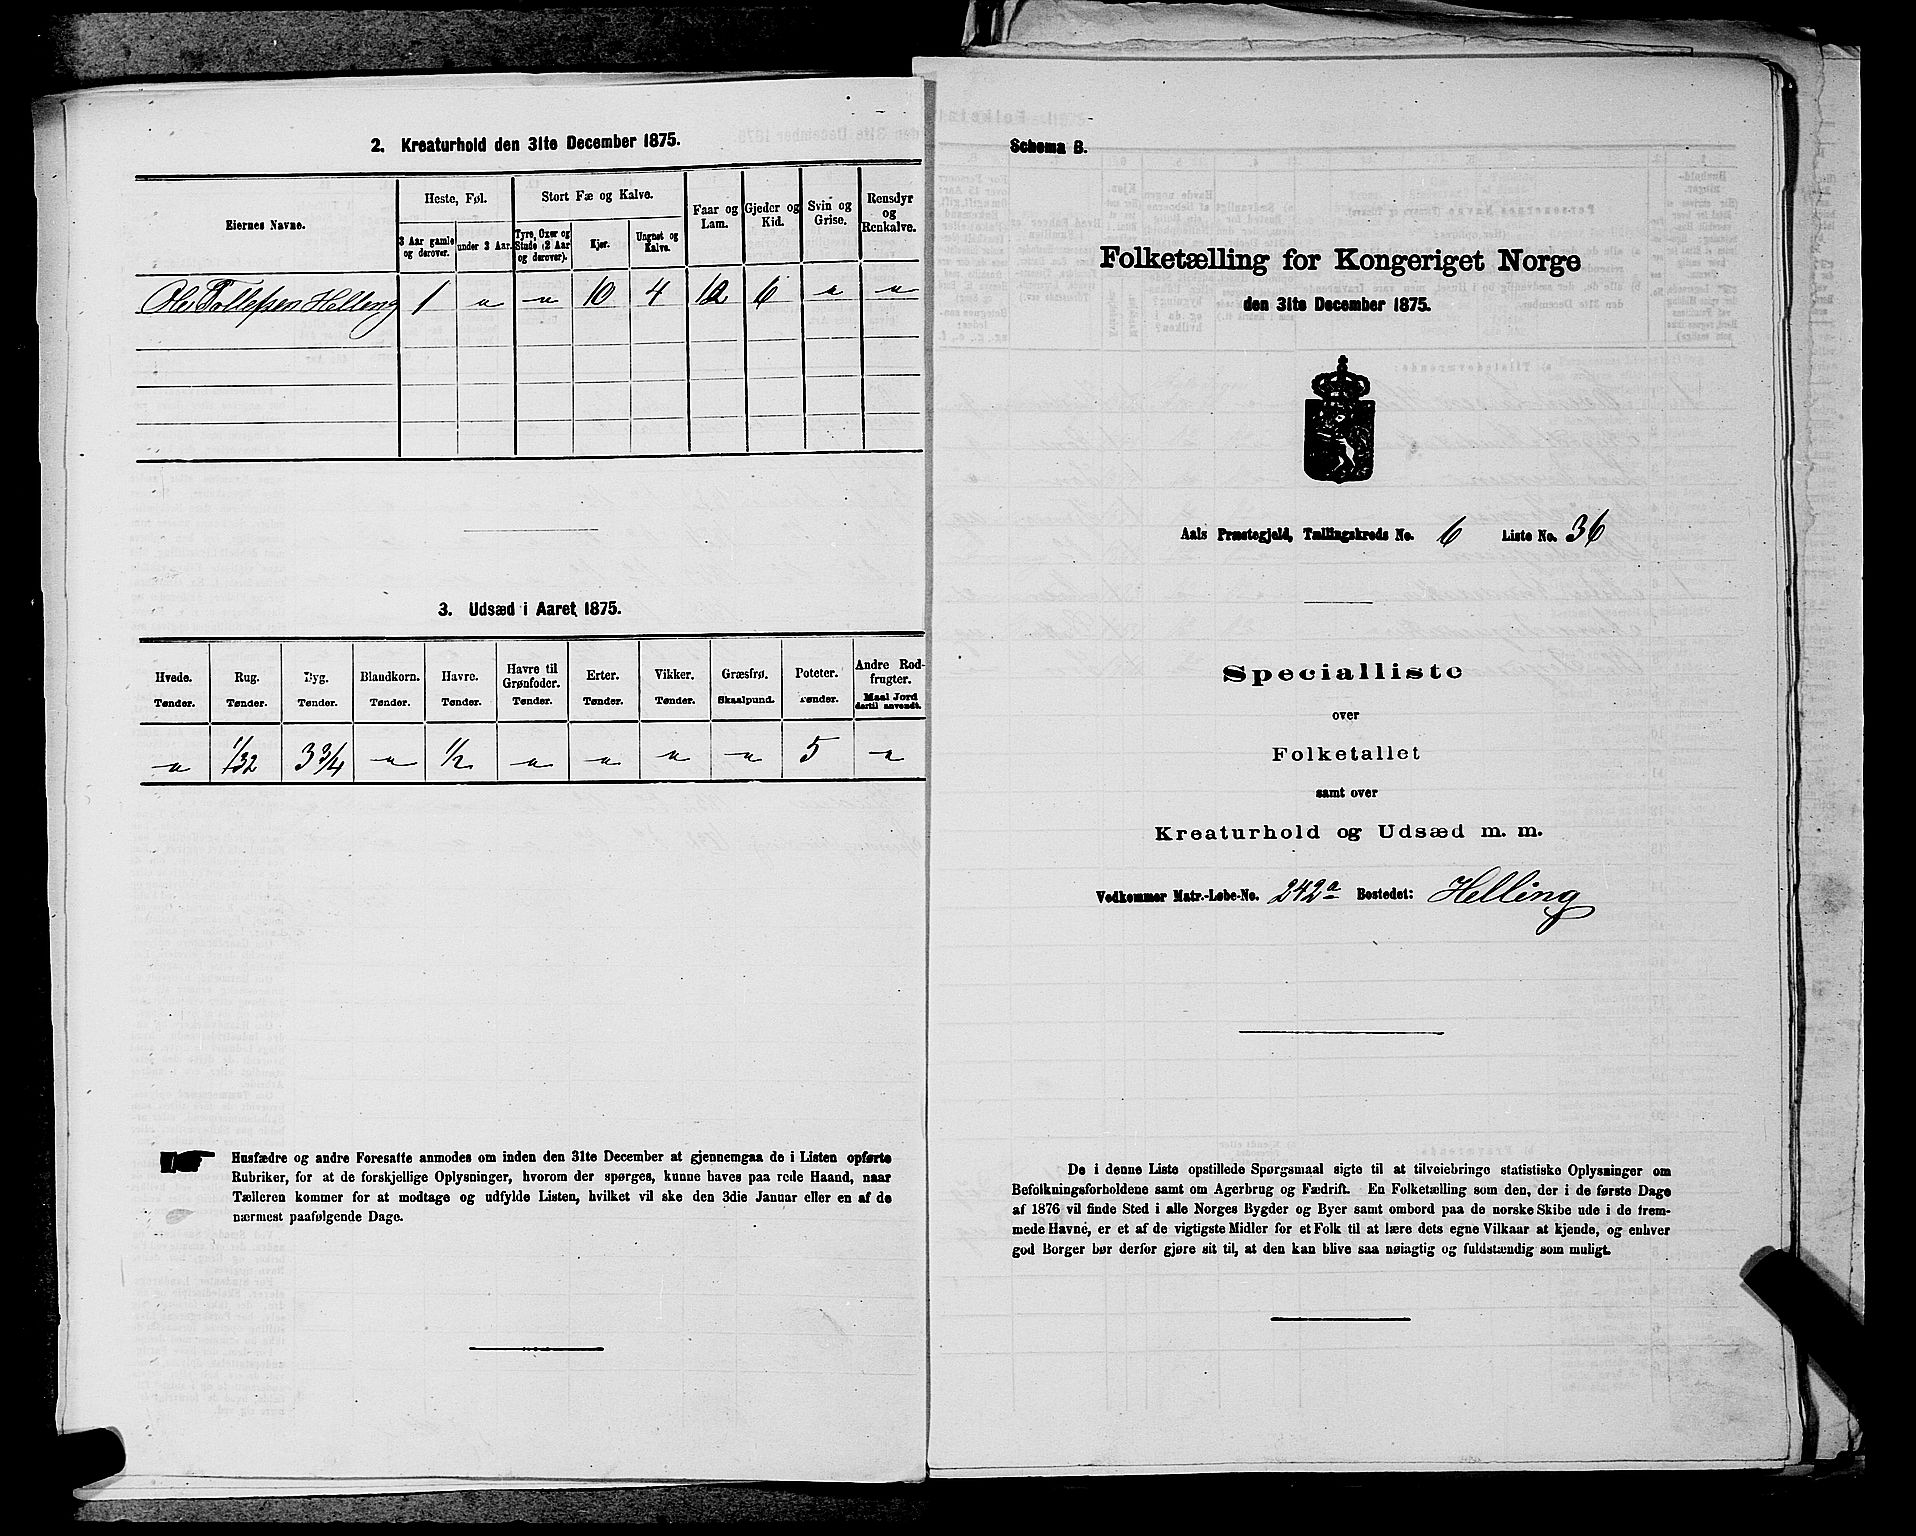 2. Kreaturhold den 31te December 1875.
Eiernes Navne.
Heste, Føl.
Stort Fæ og Kalve.
Faar og Lam.
Gjeder og Kid.
Svin og Grise.
Rensdyr og Renkalve.
3 Aar gamle og derover.
under 3 Aar.
Tyre, Oxer og Stude (2 Aar og derover).
Kjør.
Ungnøt og Kalve.
Ole Tollefsen Helling 1 " " 10 4 12 6 " "
3. Udsæd i Aaret 1875.
Hvede. Rug. Byg. Blandkorn. Havre. Havre til Grønfoder. Erter. Vikker. Græsfrø. Poteter. Andre Rodfrugter.
Tønder. Tønder. Tønder. Tønder. Tønder. Tønder. Tønder. Tønder. Skaalpund. Tønder. Maal Jord dertil anvendt.
" 1/32 3 3/4 " 1/2 " " " " 5 "
Husfædre og andre Foresatte anmodes om inden den 31te December at gjennemgaa de i Listen opførte
Rubriker, for at de forskjellige Oplysninger, hvorom der spørges, kunne haves paa rede Haand, naar
Tælleren kommer for at modtage og udfylde Listen, hvilket vil ske den 3die Januar eller en af de
nærmest paafølgende Dage.
Schema B.
Folketælling for Kongeriget Norge
den 31te December 1875.
Aals Præstegjeld, Tællingskreds No. 6 Liste No. 36
Specialliste
over
Folketallet
samt over
Kreaturhold og Udsæd m. m.
Vedkommer Matr.-Løbe-No. 242a Bostedet: Helling
De i denne Liste opstillede Spørgsmaal sigte til at tilveiebringe statistiske Oplysninger om
Befolkningsforholdene samt om Agerbrug og Fædrift. En Folketælling som den, der i de første Dage
af 1876 vil finde Sted i alle Norges Bygder og Byer samt ombord paa de norske Skibe ude i de frem-
mede Havne, er et af de vigtigste Midler for et Folk til at lære dets egne Vilkaar at kjende, og enhver
god Borger bør derfor gjøre sit til, at den kan blive saa nøiagtig og fuldstændig som muligt.